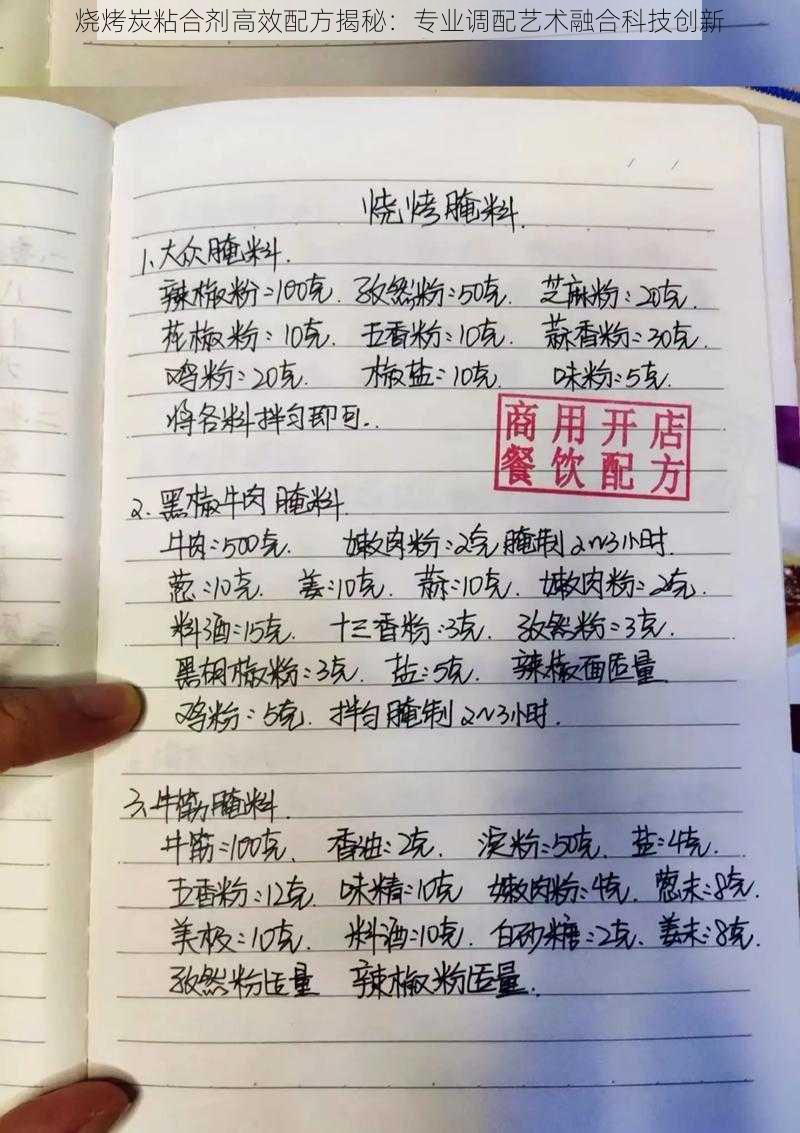 烧烤炭粘合剂高效配方揭秘：专业调配艺术融合科技创新
烧烤腌料.
1.大众腌料.
辣椒粉:100克. 孜然粉:50克. 芝麻粉:20克.
花椒粉:10克. 五香粉:10克. 蒜香粉:30克.
鸡粉:20克. 椒盐:10克. 味粉:5克.
将各料拌匀即可..
商用开店
餐饮配方
2.黑椒牛肉腌料.
牛肉:500克. 嫩肉粉:2克腌制2~3小时.
葱:10克. 姜:10克. 蒜:10克. 嫩肉粉:2克.
料酒:15克. 十三香粉:3克. 孜然粉:3克.
黑胡椒粉:3克. 盐:5克. 辣椒面适量
鸡粉:5克. 拌匀腌制2~3小时.
3.牛筋腌料.
牛筋:100克. 香油:2克. 淀粉:50克. 盐:4克.
五香粉:12克. 味精:10克 嫩肉粉:4克. 葱末:8克.
美极:10克. 料酒:10克. 白砂糖:2克. 姜末:8克.
孜然粉适量 辣椒粉适量.